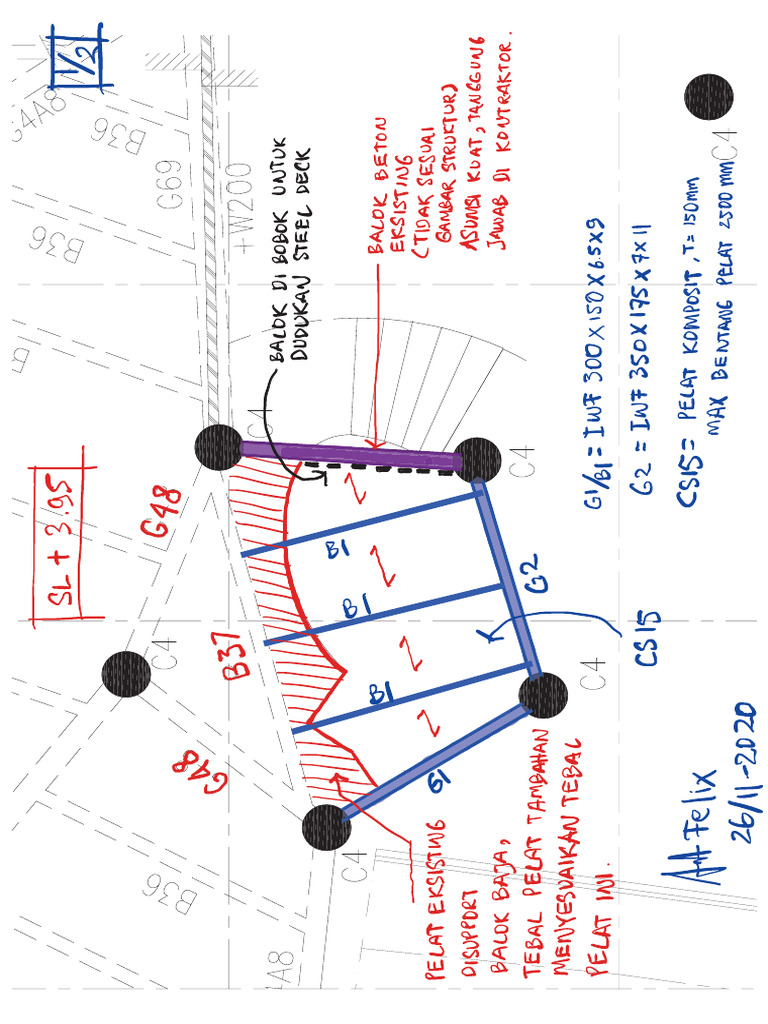 1/2
SL + 3.95
C4A8
B36
B36
G69
+W200
B36
B
BALOK DI BOBOK UNTUK
DUDUKAN STEEL DECK
BALOK BETON
EKSISTING
(TIDAK SESUAI
GAMBAR STRUKTUR)
ASUMSI KUAT, TANGGUNG
JAWAB DI KONTRAKTOR.
C4
C4
C4
G48
C4
B37
G48
B1
B1
B1
G2
G1
CS15
C4
C4
B36
4A8
G1/B1 = IWF 300X150X6.5X9
G2 = IWF 350X175X7X11
CS15 = PELAT KOMPOSIT, T=150MM
MAX BENTANG PELAT 2500 MM
PELAT EKSISTING
DISUPPORT
BALOK BAJA,
TEBAL PELAT TAMBAHAN
MENYESUAIKAN TEBAL
PELAT INI.
Felix
26/11-2020